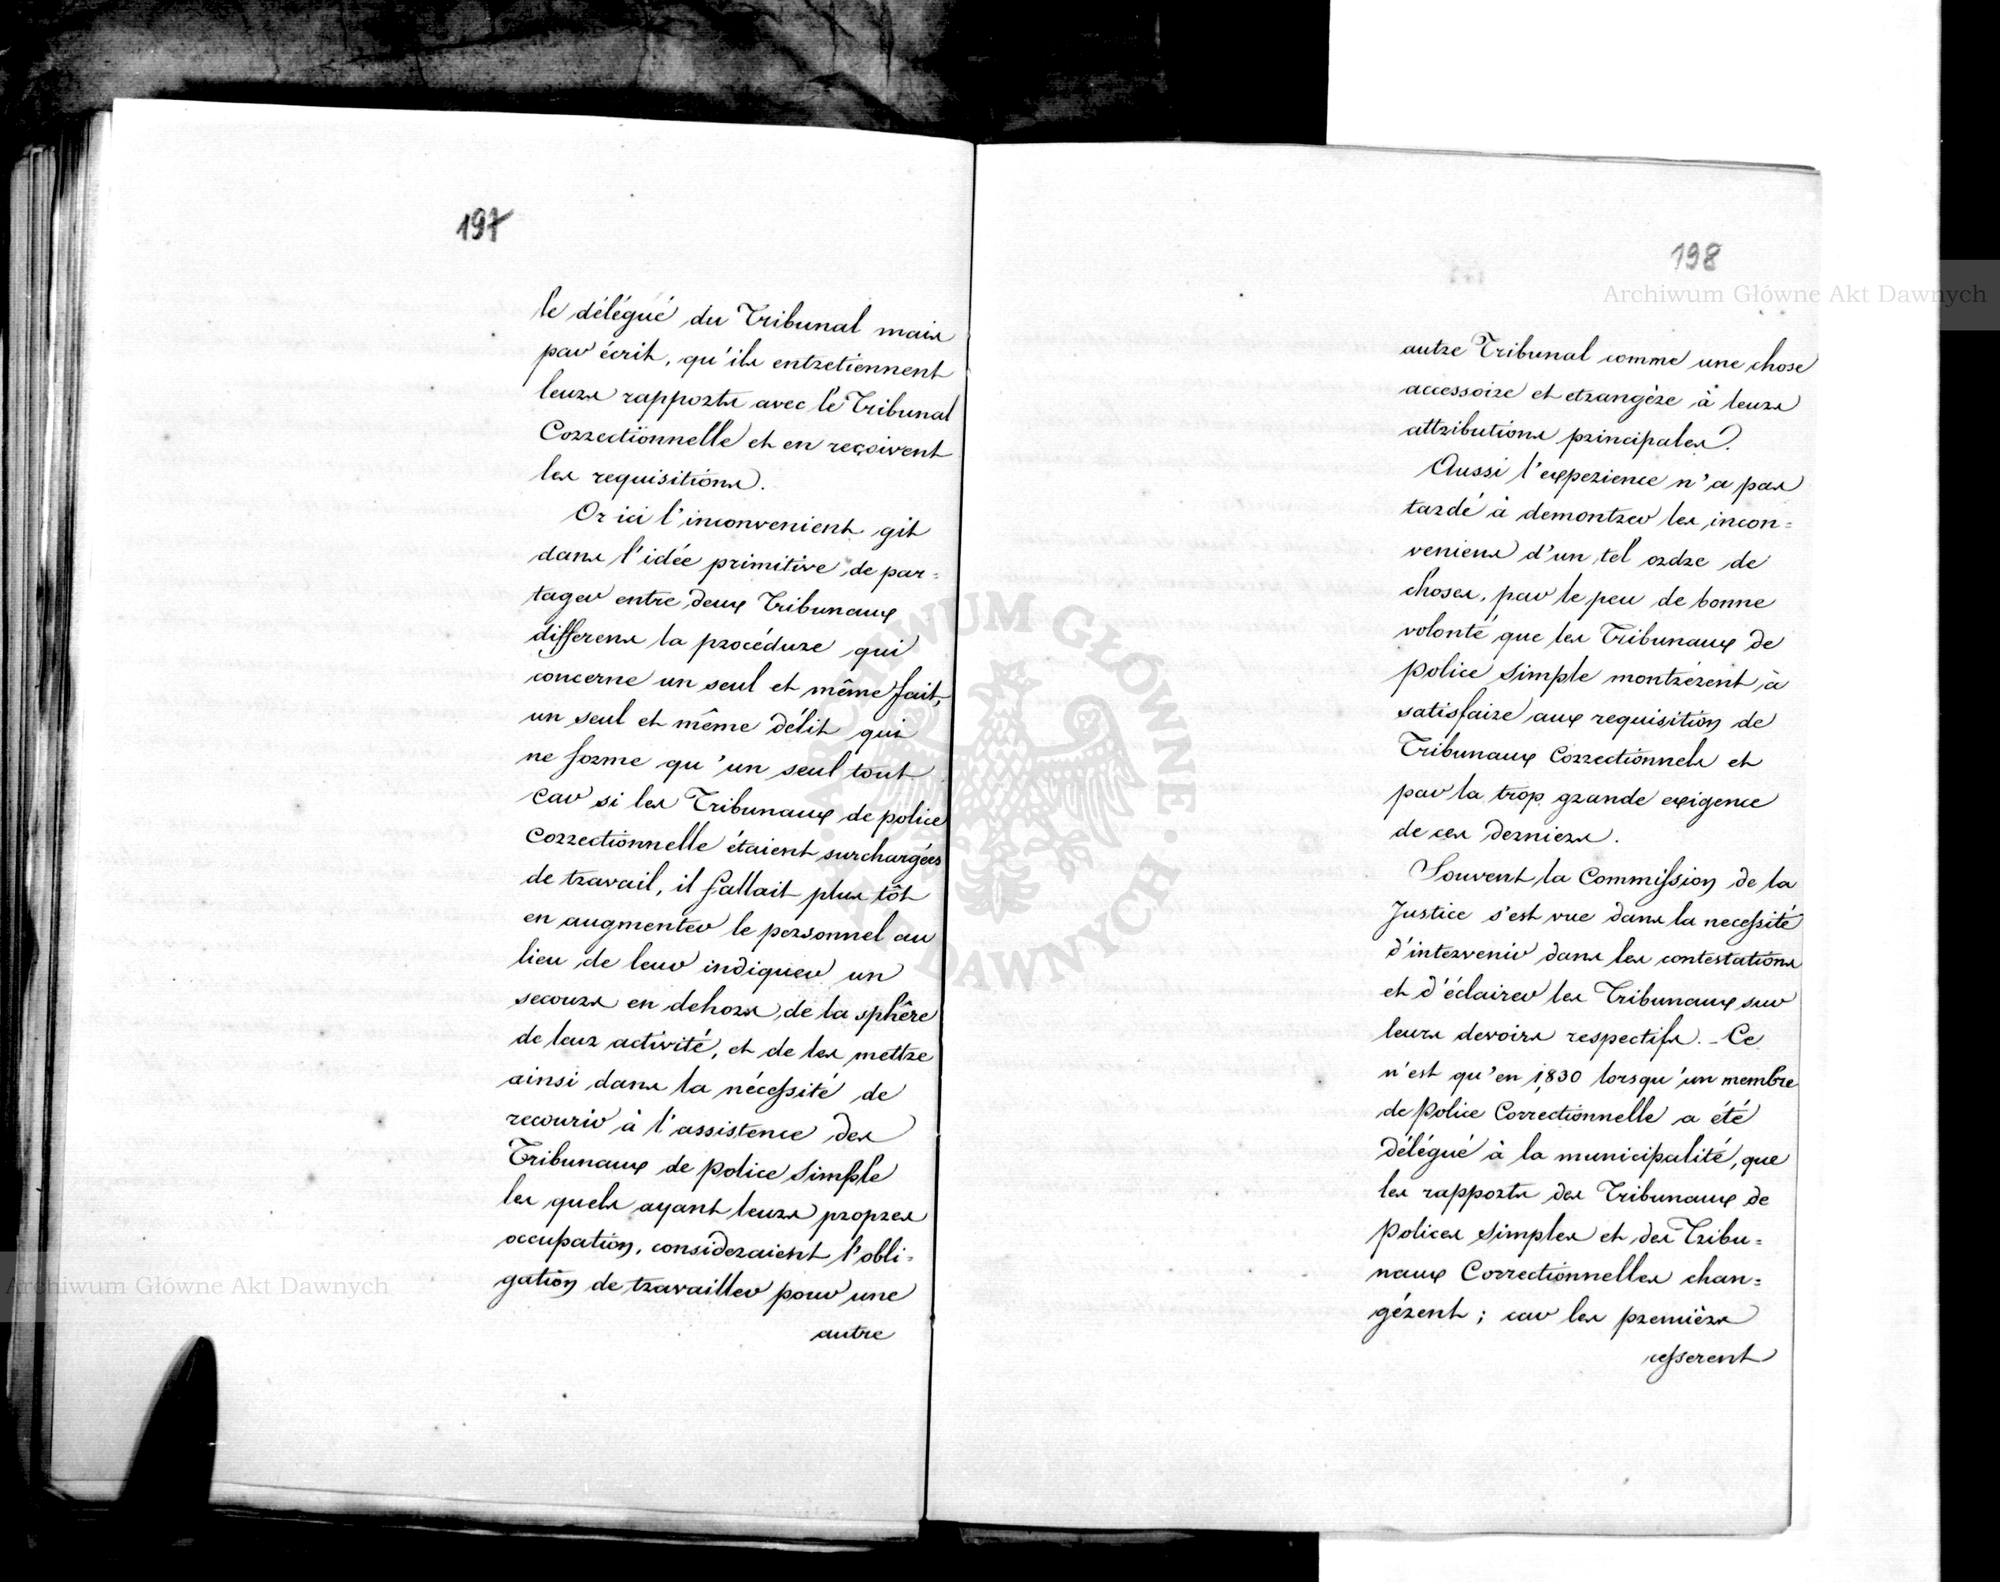 197
le délégué du Tribunal mais
par écrit, qu'ils entretiennent
leurs rapports avec le Tribunal
Correctionnelle et en reçoivent
les requisitions.
Or ici l'inconvenient git
dans l'idée primitive de par=
tager entre deux Tribunaux
differens la procédure qui
concerne un seul et même fait,
un seul et même délit qui
ne forme qu'un seul tout
Car si les Tribunaux de police
Correctionnelle étaient surchargées
de travail, il fallait plus tôt
en augmenter le personnel au
lieu de leur indiquer un
secours en dehors de la sphêre
de leur activité, et de les mettre
ainsi dans la nécessité de
recourir à l'assistence des
Tribunaux de police simple
les quels ayant leurs propres
occupation, consideraient l'obli=
gation de travailler pour une
autre
198
autre Tribunal comme une chose
accessoire et etrangère à leurs
attributions principales?
Aussi l'experience n'a pas
tardé à demontrer les incon=
veniens d'un tel ordre de
choses, par le peu de bonne
volonté que les Tribunaux de
police simple montrérent à
satisfaire aux requisition de
Tribunaux Correctionnels et
par la trop grande exigence
de ces derniers.
Souvent la Commission de la
Justice s'est vue dans la necessité
d'intervenir dans les contestations
et d'éclairer les Tribunaux sur
leurs devoirs respectifs. - Ce
n'est qu'en 1830 lorsqu'un membre
de police Correctionnelle a été
délégué à la municipalité, que
les rapports des Tribunaux de
Polices simples et des Tribu=
naux Correctionnelles chan=
gérent ; car les premièrs
cesserent
Archiwum Główne Akt Dawnych
Archiwum Główne Akt Dawnych
ARCHIWUM GŁÓWNE AKT DAWNYCH